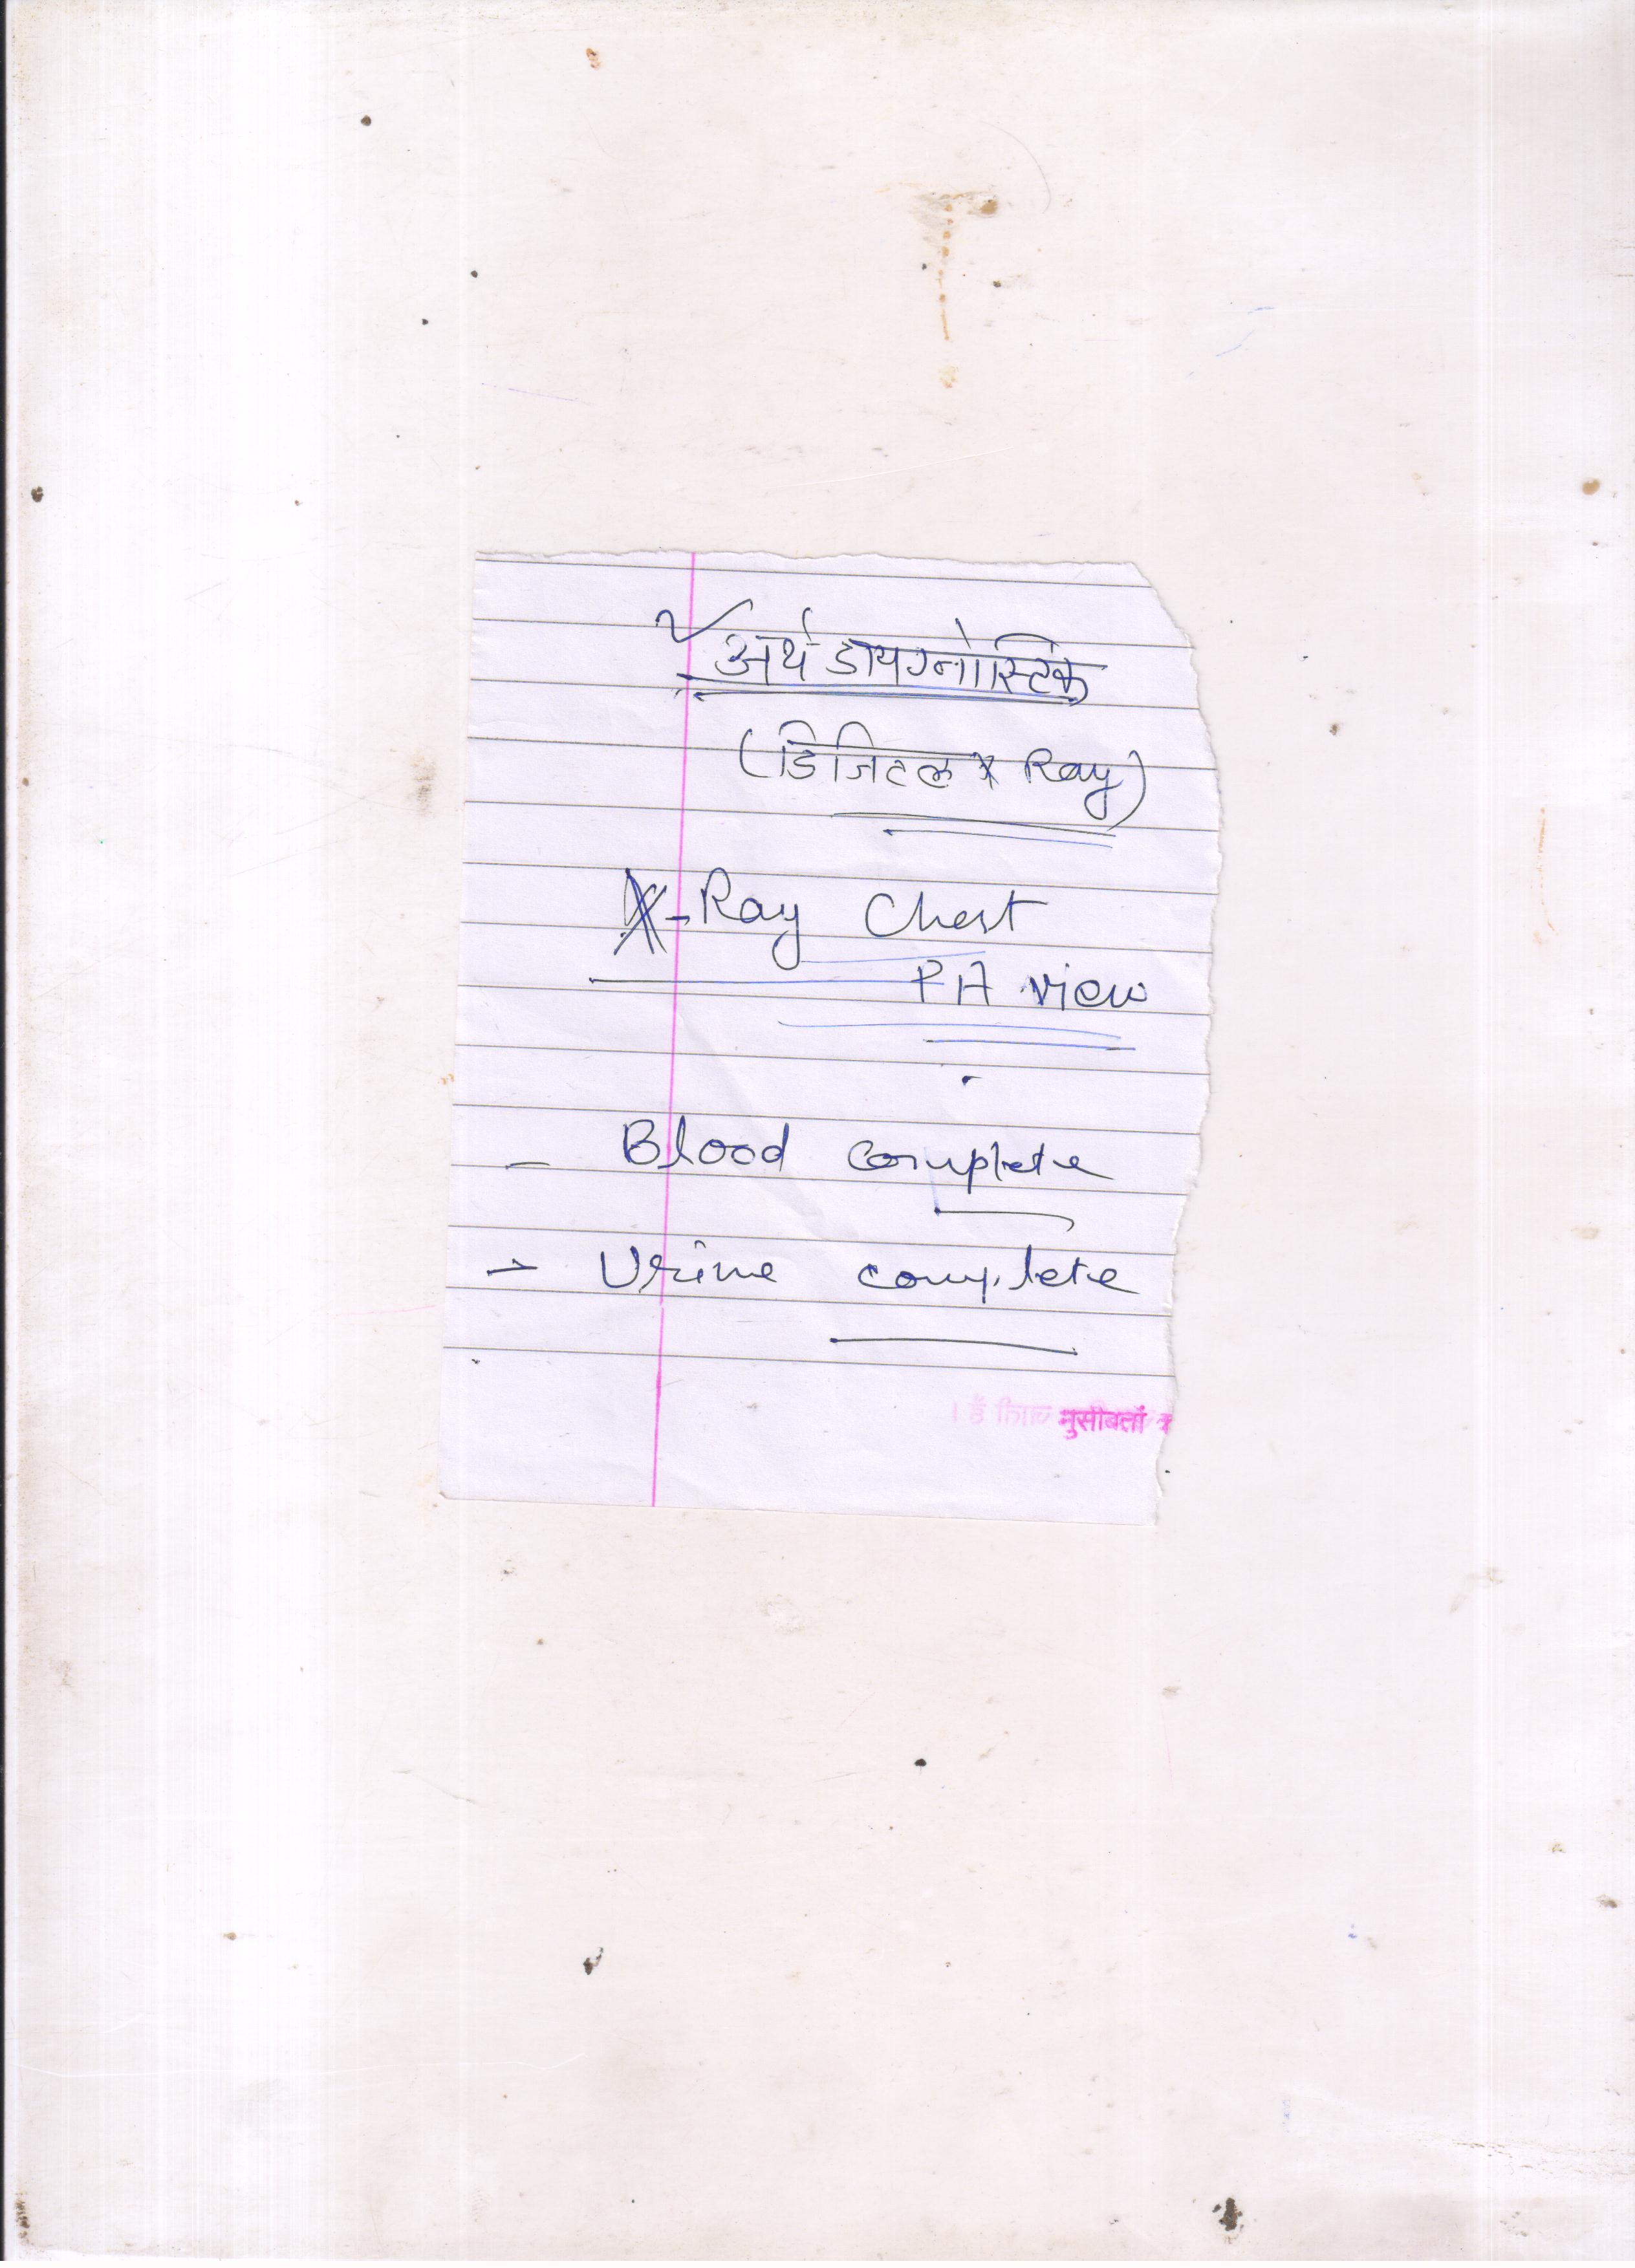 अर्थ डायग्नोस्टिक
(डिजिटल X Ray)
X-Ray Chest
PA view
- Blood complete
- Urine complete
मुसीबतों